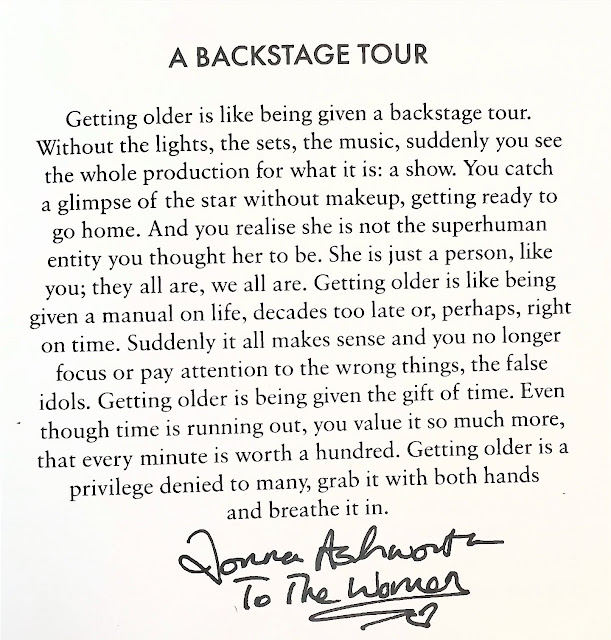 A BACKSTAGE TOUR
Getting older is like being given a backstage tour.
Without the lights, the sets, the music, suddenly you see
the whole production for what it is: a show. You catch
a glimpse of the star without makeup, getting ready to
go home. And you realise she is not the superhuman
entity you thought her to be. She is just a person, like
you; they all are, we all are. Getting older is like being
given a manual on life, decades too late or, perhaps, right
on time. Suddenly it all makes sense and you no longer
focus or pay attention to the wrong things, the false
idols. Getting older is being given the gift of time. Even
though time is running out, you value it so much more,
that every minute is worth a hundred. Getting older is a
privilege denied to many, grab it with both hands
and breathe it in.
Donna Ashworth
To The Women